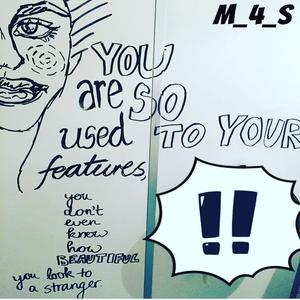 M_4_S
YOU
are SO
used TO YOUR
features,
you
don't
even
know
how
BEAUTIFUL
you look to
a stranger.
!!